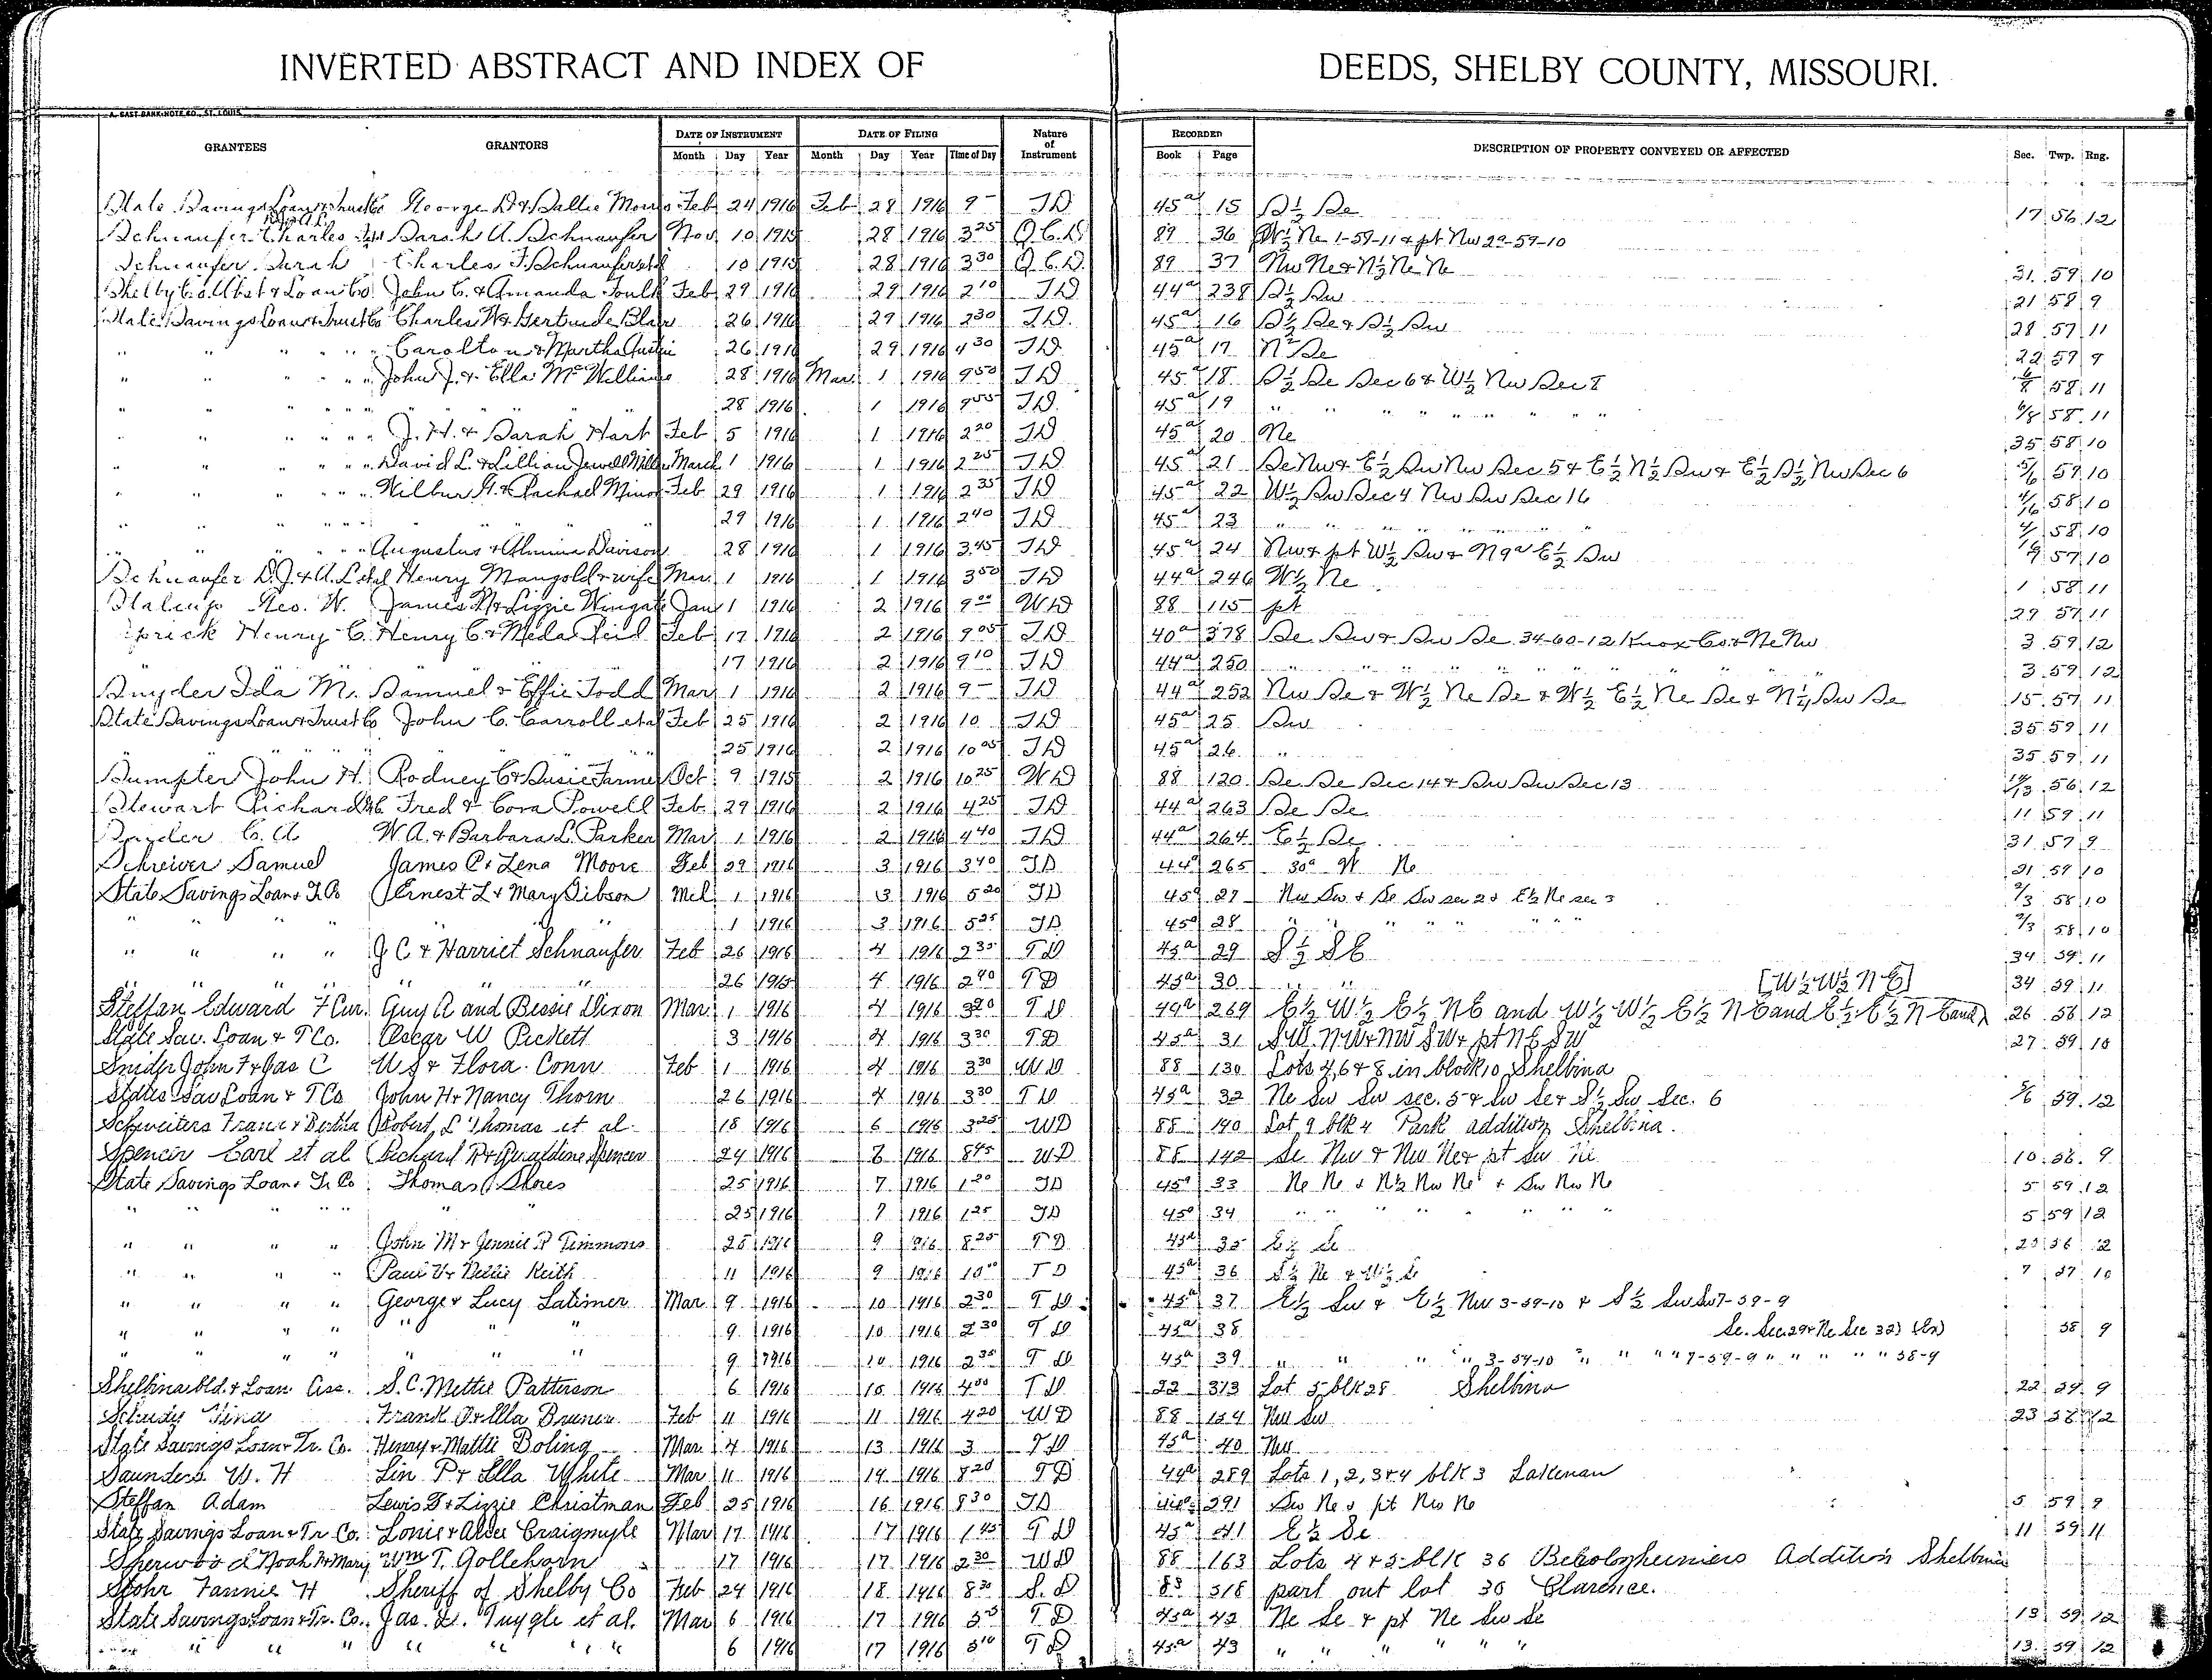 INVERTED ABSTRACT AND INDEX OF DEEDS, SHELBY COUNTY, MISSOURI.
A. GAST BANK NOTE CO., ST. LOUIS
GRANTEES GRANTORS DATE OF INSTRUMENT DATE OF FILING Nature of Instrument RECORDED DESCRIPTION OF PROPERTY CONVEYED OR AFFECTED Sec. Twp. Rng.
Month Day Year Month Day Year Time of Day Book Page
State Savings Loan & Trust Co George D & Sallie Feb 24 1916 Feb 28 1916 9 — TD 45a 15 S½ Se 17 56 12
Schnaufer Charles Sarah A. Schnaufer Nov 10 1915 28 1916 3 25 Q.C.D 89 36 W½ Ne 1-59-11 & pt Nw 29-59-10
Schnaufer Sarah Charles F. Schnaufer et al 10 1915 28 1916 3 30 Q.C.D. 89 37 Nw Ne & N½ Ne Ne 31 59 10
Shelby Co Abst & Loan Co John C. & Amanda Foulk Feb 29 1916 29 1916 2 10 TD 44a 238 S½ Sw 21 58 9
State Savings Loan & Trust Co Charles W & Gertrude Blair 26 1916 29 1916 2 30 TD. 45a 16 S½ Se & S½ Sw 28 57 11
" " " " " Carolton & Martha 26 1916 29 1916 4 30 TD 45a 17 N½ Se 22 59 9
" " " " " John J. & Ella McWilliams 28 1916 Mar. 1 1916 9 50 TD 45a 18 S½ Se Sec 6 & W½ Nw Sec 8 6/8 58 11
" " " " " " " 28 1916 1 1916 9 55 TD. 45a 19 " " " " " " " " 6/8 58 11
" " " " " J. H. & Sarah Hart Feb 5 1916 1 1916 2 20 TD 45a 20 Ne 35 58 10
" " " " " David L. & Lillian Jewell Miller March 1 1916 1 1916 2 25 TD 45a 21 Se Nw & E½ Sw Nw Sec 5 & E½ N½ Sw & E½ S½ Nw Sec 6 5/6 59 10
" " " " " Wilbur G. & Rachael Minor Feb 29 1916 1 1916 2 35 TD 45a 22 W½ Sw Sec 4 Nw Sw Sec 16 4/16 58 10
" " " " " " " 29 1916 1 1916 2 40 TD 45a 23 " " " " " " 58 10
" " " " " Augustus & Almina Davison 28 1916 1 1916 3 45 TD 45a 24 Nw & pt W½ Sw & N 9a E½ Sw 57 10
Schnaufer D.J. & A.L. et al Henry Mangold & wife Mar. 1 1916 1 1916 3 50 TD 44a 246 W½ Ne 1 58 11
Stalcup Geo. W. James N & Lizzie Wingate Jan 1 1916 2 1916 9 00 WD 88 115 pt 29 57 11
Henry C. Henry C & Meda Feb 17 1916 2 1916 9 05 TD 40a 378 Se Sw & Sw Se 34-60-12 Knox Co. & Ne Nw 3 59 12
" 17 1916 2 1916 9 10 TD 44a 250 " " " " " " " 3 59 12
Snyder Ida M. Samuel & Effie Todd Mar 1 1916 2 1916 9 — TD 44a 252 Nw Se & W½ Ne Se & W½ E½ Ne Se & N¼ Sw Se 15 57 11
State Savings Loan & Trust Co John C. Carroll et al Feb 25 1916 2 1916 10 TD 45a 25 Sw 35 59 11
" " 25 1916 2 1916 10 05 TD 45a 26 " 35 59 11
Sumpter John H. Rodney C & Susie Farmer Oct 9 1915 2 1916 10 25 WD 88 120 Se Se Sec 14 & Sw Sw Sec 13 14/13 56 12
Stewart Richard Fred & Cora Powell Feb. 29 1916 2 1916 4 25 TD 44a 263 Se Se 11 59 11
Snyder C. A W. A. & Barbara L. Parker Mar 1 1916 2 1916 4 40 TD 44a 264 E½ Se 31 57 9
Schreiver Samuel James C & Lena Moore Feb 29 1916 3 1916 3 40 TD 44a 265 30a W Ne 31 59 10
State Savings Loan & T Co Ernest L & Mary Gibson Mch 1 1916 3 1916 5 20 TD 45a 27 Nw Sw & Se Sw sec 2 & E½ Ne sec 3 2/3 58 10
" " " " 1 1916 3 1916 5 25 TD 45a 28 " " " " " " 2/3 58 10
" " " " J C & Harriet Schnaufer Feb 26 1916 4 1916 2 35 TD 45a 29 S½ SE 34 59 11
" " " " " 26 1916 4 1916 2 40 TD 45a 30 " " 34 59 11
[W½ W½ NE]
Steffan Edward F Cur. Guy A and Bessie Dixon Mar. 1 1916 4 1916 3 20 TD 44a 269 E½ W½ E½ NE and W½ W½ E½ NE and E½ E½ NE and 26 56 12
State Sav. Loan & T Co. Oscar W Pickett 3 1916 4 1916 3 30 TD 45a 31 SW NW & NW SW & pt NE SW 27 59 10
Snider John F & Jas C W S & Flora Conn Feb 1 1916 4 1916 3 30 WD 88 130 Lots 4, 6 & 8 in block 10 Shelbina
States Sav Loan & T Co John H & Nancy Thorn 26 1916 4 1916 3 30 TD 45a 32 Ne Sw Sw sec. 5 & Sw Se & S½ Sw Sec. 6 5/6 59 12
Schweiters Frank & Bertha Robert L Thomas et al 18 1916 6 1916 3 25 WD 88 140 Lot 9 blk 4 Park addition Shelbina.
Spencer Earl et al Richard P & Geraldine Spencer 24 1916 7 1916 8 45 WD 88 142 Se Nw & Nw Ne & pt Sw Ne 10 56 9
State Savings Loan & Tr Co Thomas J. Shores 25 1916 7 1916 1 20 TD 45a 33 Ne Ne & N½ Nw Ne & Sw Nw Ne 5 59 12
" " " " " 25 1916 7 1916 1 25 TD 45a 34 " " " " " " " 5 59 12
" " " " John M & Jennie P Timmons 25 1916 9 1916 8 25 TD 45a 35 E½ Se 56 12
" " " " Paul V & Nellie Keith 11 1916 9 1916 10 00 TD 45a 36 S½ Ne & 7 57 10
" " " " George & Lucy Latimer Mar 9 1916 10 1916 2 30 TD 45a 37 E½ Sw & E½ Nw 3-59-10 & S½ Sw Sw 7-59-9
" " " " " " " 9 1916 10 1916 2 30 TD 45a 38 Se. Sec 29 & Ne Sec 32) 58 9
" " " " " " " 9 1916 10 1916 2 35 TD 45a 39 " " " " 3-59-10 " " " " 7-59-9 " " " " " 58-9
Shelbina bld. & Loan Ass. S.C. Mettie Patterson 6 1916 10 1916 4 00 TD 22 313 Lot 5 blk 28 Shelbina 22 9
Tina Frank & Ella Bruner Feb 11 1916 11 1916 4 20 WD 88 154 Nw Sw 23 58 12
State Savings Loan & Tr. Co. Henry & Mattie Boling Mar. 4 1916 13 1916 3 TD 45a 40 Nw
Saunders W. H Lin P & Ella White Mar 11 1916 14 1916 8 20 TD 44a 289 Lots 1, 2, 3 & 4 blk 3 Lakenan
Steffan Adam Lewis F & Lizzie Christman Feb 25 1916 16 1916 8 30 TD 44a 291 Sw Ne & pt Nw Ne 5 59 9
State Savings Loan & Tr. Co. Lonie & Alice Craigmyle Mar 17 1916 17 1916 1 45 TD 45a 41 E½ Se 11 59 11
Sherwood Noah & Mary Wm T. Gollehorn 17 1916 17 1916 2 30 WD 88 163 Lots 4 & 5 blk 36 Addition Shelbina
Stohr Fannie H Sheriff of Shelby Co Feb 24 1916 18 1916 8 30 S. D 83 518 part out lot 30 Clarence.
State Savings Loan & Tr. Co. Jas. W. Tuggle et al. Mar 6 1916 17 1916 TD 45a 42 Ne Se & pt Ne Sw Se 13 59 12
" " " " " " " 6 1916 17 1916 TD 45a 43 " " " " " " 13 59 12